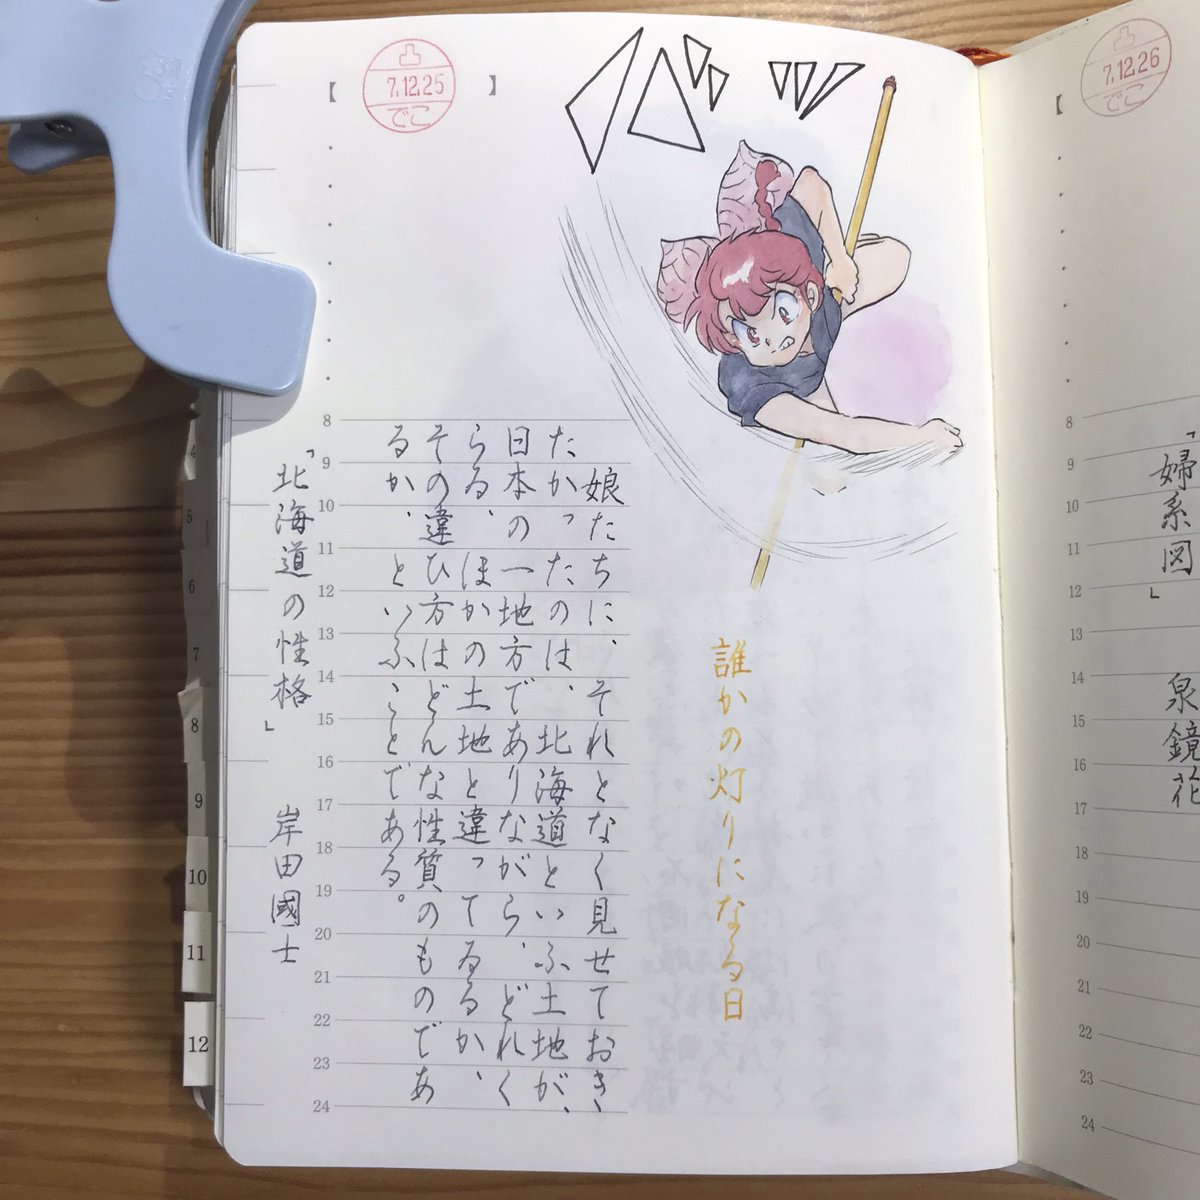 【 凸 7.12.25 でこ 】
バッ
誰かの灯りになる日
娘たちに、それとなく見せておき、
たかったのは、北海道といふ土地が、
日本の一地方でありながら、どれく
らゐ、ほかの土地と違ってゐるか、
その違ひ方はどんな性質のものであ
るか、といふことである。
「北海道の性格」 岸田國士
8
9
10
11
12
13
14
15
16
17
18
19
20
21
22
23
24
4
5
6
7
8
9
10
11
12
【 凸 7.12.26 でこ
「婦系図」 泉鏡花
8
9
10
11
12
13
14
15
16
17
18
19
20
21
22
23
24